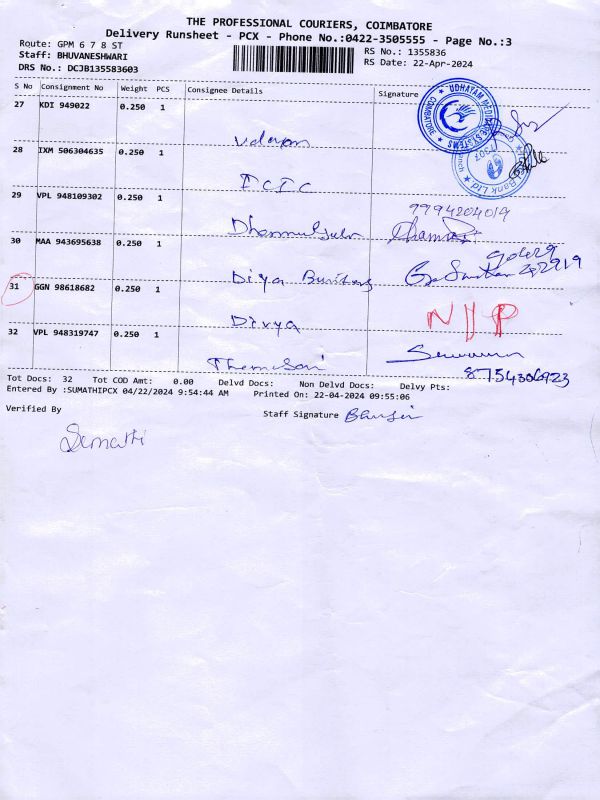 THE PROFESSIONAL COURIERS, COIMBATORE
Delivery Runsheet - PCX - Phone No.:0422-3505555 - Page No.:3
Route: GPM 6 7 8 ST
RS No.: 1355836
Staff: BHUVANESHWARI
RS Date: 22-Apr-2024
DRS No.: DCJB135583603
S No Connsignment No Weight PCS Consignee Details Signature
27 KDI 949022 0.250 1
28 IXM 506304635 0.250 1
ICIC
29 VPL 948109302 0.250 1
9994204019
30 MAA 943695638 0.250 1
Divya
31 GGN 98618682 0.250 1
Divya
32 VPL 948319747 0.250 1
8754306923
Tot Docs: 32 Tot COD Amt: 0.00 Delvd Docs: Non Delvd Docs: Delvy Pts:
Entered By :SUMATHIPCX 04/22/2024 9:54:44 AM Printed On: 22-04-2024 09:55:06
Verified By
Staff Signature
Sumathi